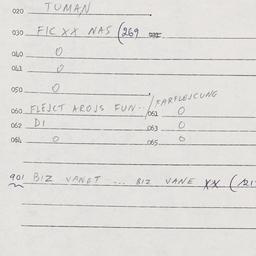 020 TUMAN
030 FIC XX NAS (269
040 0
041 0
050 0
060 FLEJCT AROJS FUN-- / FARFLEJCUNG
061 0
062 DI
063 0
064 0
065 0
901 BIZ VANET ... BIZ VANE XX (121